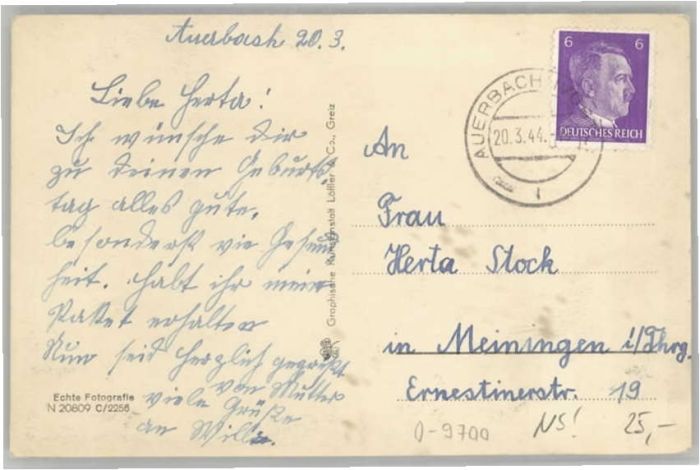 Auerbach 20. 3.
Liebe Herta!
Ich wünsche Dir
zu Deinen Geburts,
tag alles gute,
besonders die Gesund
heit. Habt ihr mein
Packet erhalten
Nun seid herzlich gegrüßt
von Mutter
viele Grüße
an Willi.
Echte Fotografie
N 20809 C/2256
Graphische Kunstanstalt Löffler & Co., Greiz
6 6
DEUTSCHES REICH
AUERBACH
20.3.44.
An
Frau
Herta Stock
in Meiningen i/Thrg.
Ernestinerstr. 19
0-9700 NS! 25,-